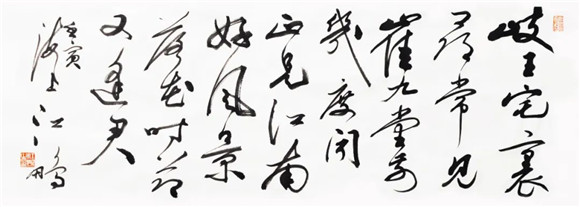 岐王宅裏
尋常見
崔九堂前
幾度聞
正是江南
好風景
落花時節
又逢君
壬寅
海上江鵬